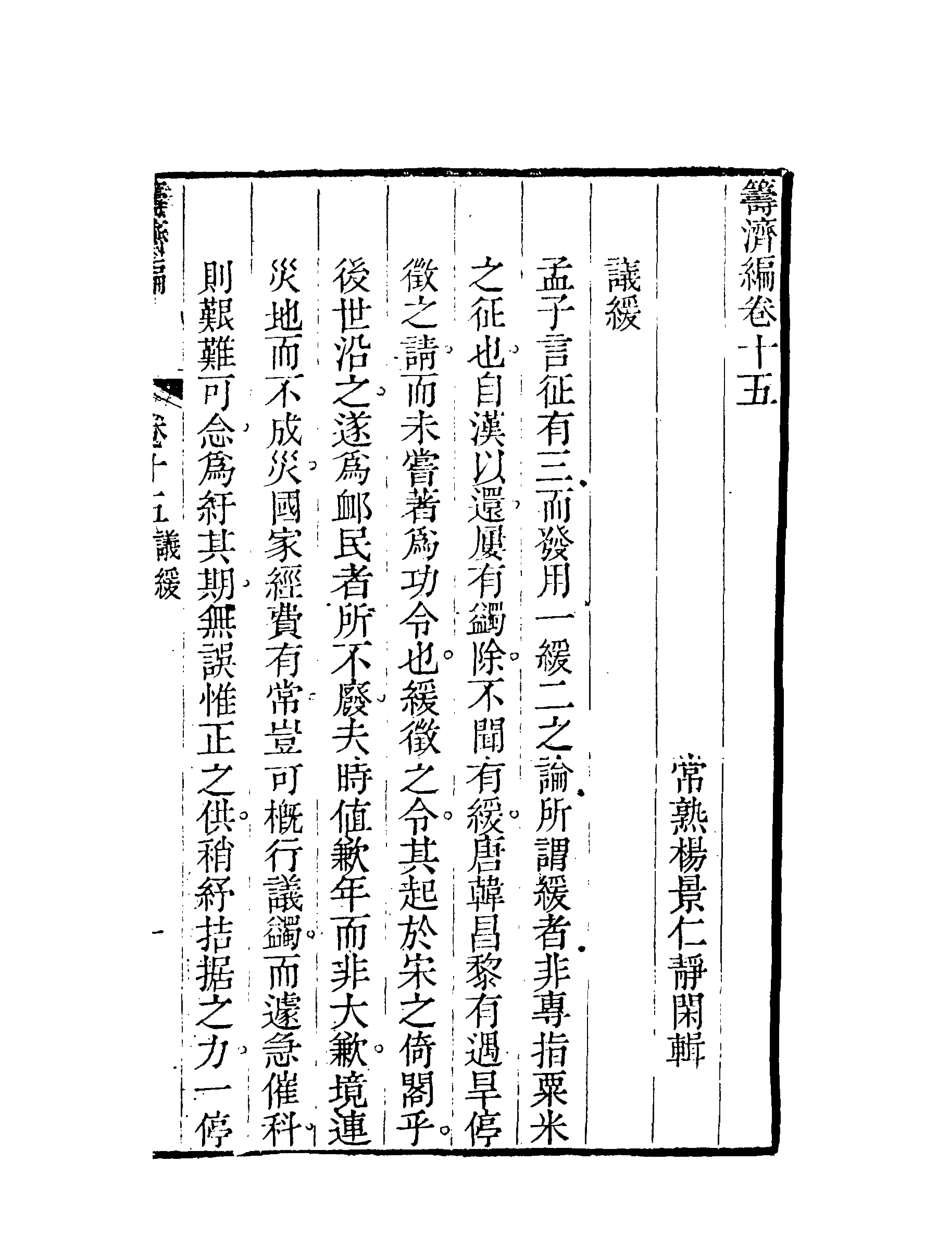 籌濟編卷十五
常熟楊景仁靜閑輯
議緩
孟子言征有三而發用一緩二之論所謂緩者非專指粟米
之征也自漢以還屢有蠲除不聞有緩唐韓昌黎有遇旱停
徵之請而未嘗著爲功令也緩徵之令其起於宋之倚閣乎
後世沿之遂爲卹民者所不廢夫時値歉年而非大歉境連
災地而不成災國家經費有常豈可槪行議蠲而遽急催科
則艱難可念爲紓其期無誤惟正之供稍紓拮据之力一停
籌濟編
卷十五議緩
一